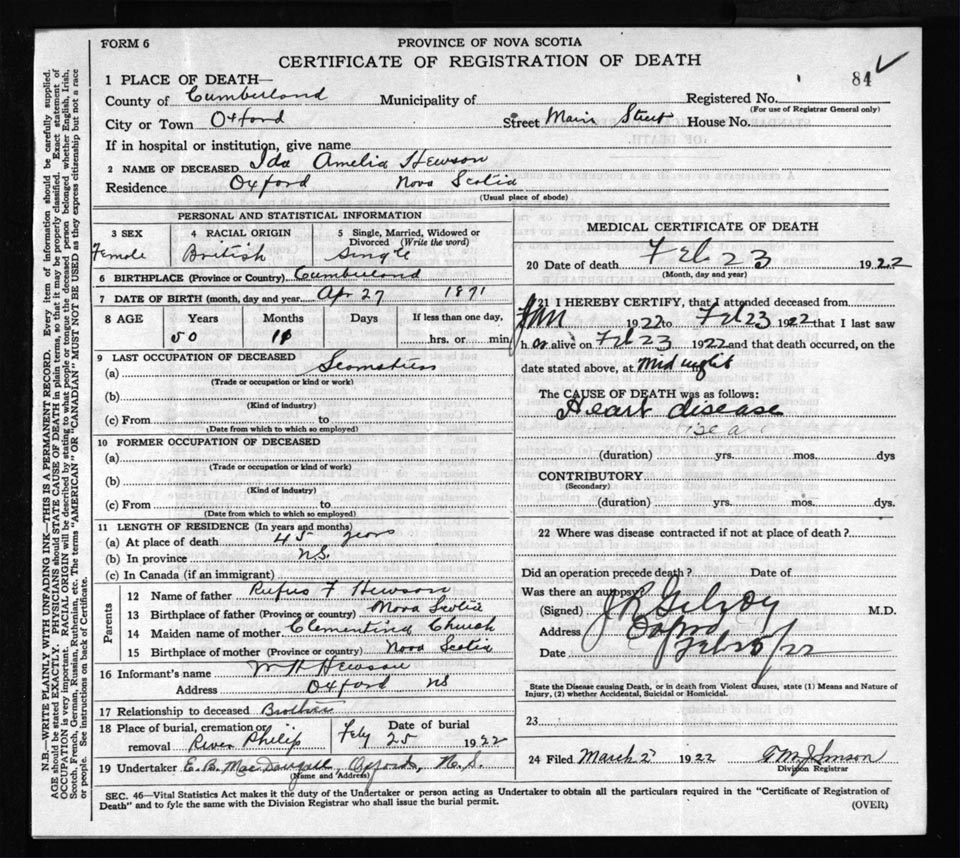 FORM 6
PROVINCE OF NOVA SCOTIA
CERTIFICATE OF REGISTRATION OF DEATH
84
1 PLACE OF DEATH—
County of Cumberland Municipality of Registered No.
(For use of Registrar General only)
City or Town Oxford Street Main Street House No.
If in hospital or institution, give name
2 NAME OF DECEASED Ida Amelia Hewson
Residence Oxford Nova Scotia
(Usual place of abode)
PERSONAL AND STATISTICAL INFORMATION
3 SEX 4 RACIAL ORIGIN 5 Single, Married, Widowed or Divorced (Write the word)
Female British Single
6 BIRTHPLACE (Province or Country) Cumberland
7 DATE OF BIRTH (month, day and year) Apr 27 1871
8 AGE Years Months Days If less than one day,
50 hrs. or min
9 LAST OCCUPATION OF DECEASED
(a) Seamstress
(Trade or occupation or kind or work)
(b)
(Kind of industry)
(c) From to
(Date from which to which so employed)
10 FORMER OCCUPATION OF DECEASED
(a)
(Trade or occupation or kind of work)
(b)
(Kind of industry)
(c) From to
(Date from which to which so employed)
11 LENGTH OF RESIDENCE (In years and months)
(a) At place of death 45 years
(b) In province N.S.
(c) In Canada (if an immigrant)
Parents
12 Name of father Rufus F Hewson
13 Birthplace of father (Province or country) Nova Scotia
14 Maiden name of mother Clementina Church
15 Birthplace of mother (Province or country) Nova Scotia
16 Informant's name W H Hewson
Address Oxford NS
17 Relationship to deceased Brother
18 Place of burial, cremation or removal River Philip Date of burial Feby 25 1922
19 Undertaker E. B. MacDougall Oxford, N.S.
(Name and Address)
MEDICAL CERTIFICATE OF DEATH
20 Date of death Feb 23 1922
(Month, day and year)
21 I HEREBY CERTIFY, that I attended deceased from
Jan 1922 to Feb 23 1922 that I last saw
h er alive on Feb 23 1922 and that death occurred, on the
date stated above, at Mid night
The CAUSE OF DEATH was as follows:
Heart disease
(duration) yrs. mos. dys
CONTRIBUTORY
(Secondary)
(duration) yrs. mos. dys.
22 Where was disease contracted if not at place of death?
Did an operation precede death? Date of
Was there an autopsy?
(Signed) J R Gilroy M.D.
Address Oxford
Date Feb 25/22
State the Disease causing Death, or in death from Violent Causes, state (1) Means and Nature of
Injury, (2) whether Accidental, Suicidal or Homicidal.
23
24 Filed March 2 1922
Division Registrar
SEC. 46—Vital Statistics Act makes it the duty of the Undertaker or person acting as Undertaker to obtain all the particulars required in the "Certificate of Registration of
Death" and to fyle the same with the Division Registrar who shall issue the burial permit.
(OVER)
N.B.—WRITE PLAINLY WITH UNFADING INK—THIS IS A PERMANENT RECORD. Every item of information should be carefully supplied.
AGE should be stated EXACTLY. PHYSICIANS should STATE CAUSE OF DEATH in plain terms, so that it may be properly classified. Exact statement of
OCCUPATION is very important. RACIAL ORIGIN will be described by stating to what people or tongue the deceased person belonged whether English, Irish,
Scotch, French, German, Russian, Ruthenian, etc. The terms "AMERICAN" OR "CANADIAN" MUST NOT BE USED as they express citizenship but not a race
or people. See instructions on back of Certificate.